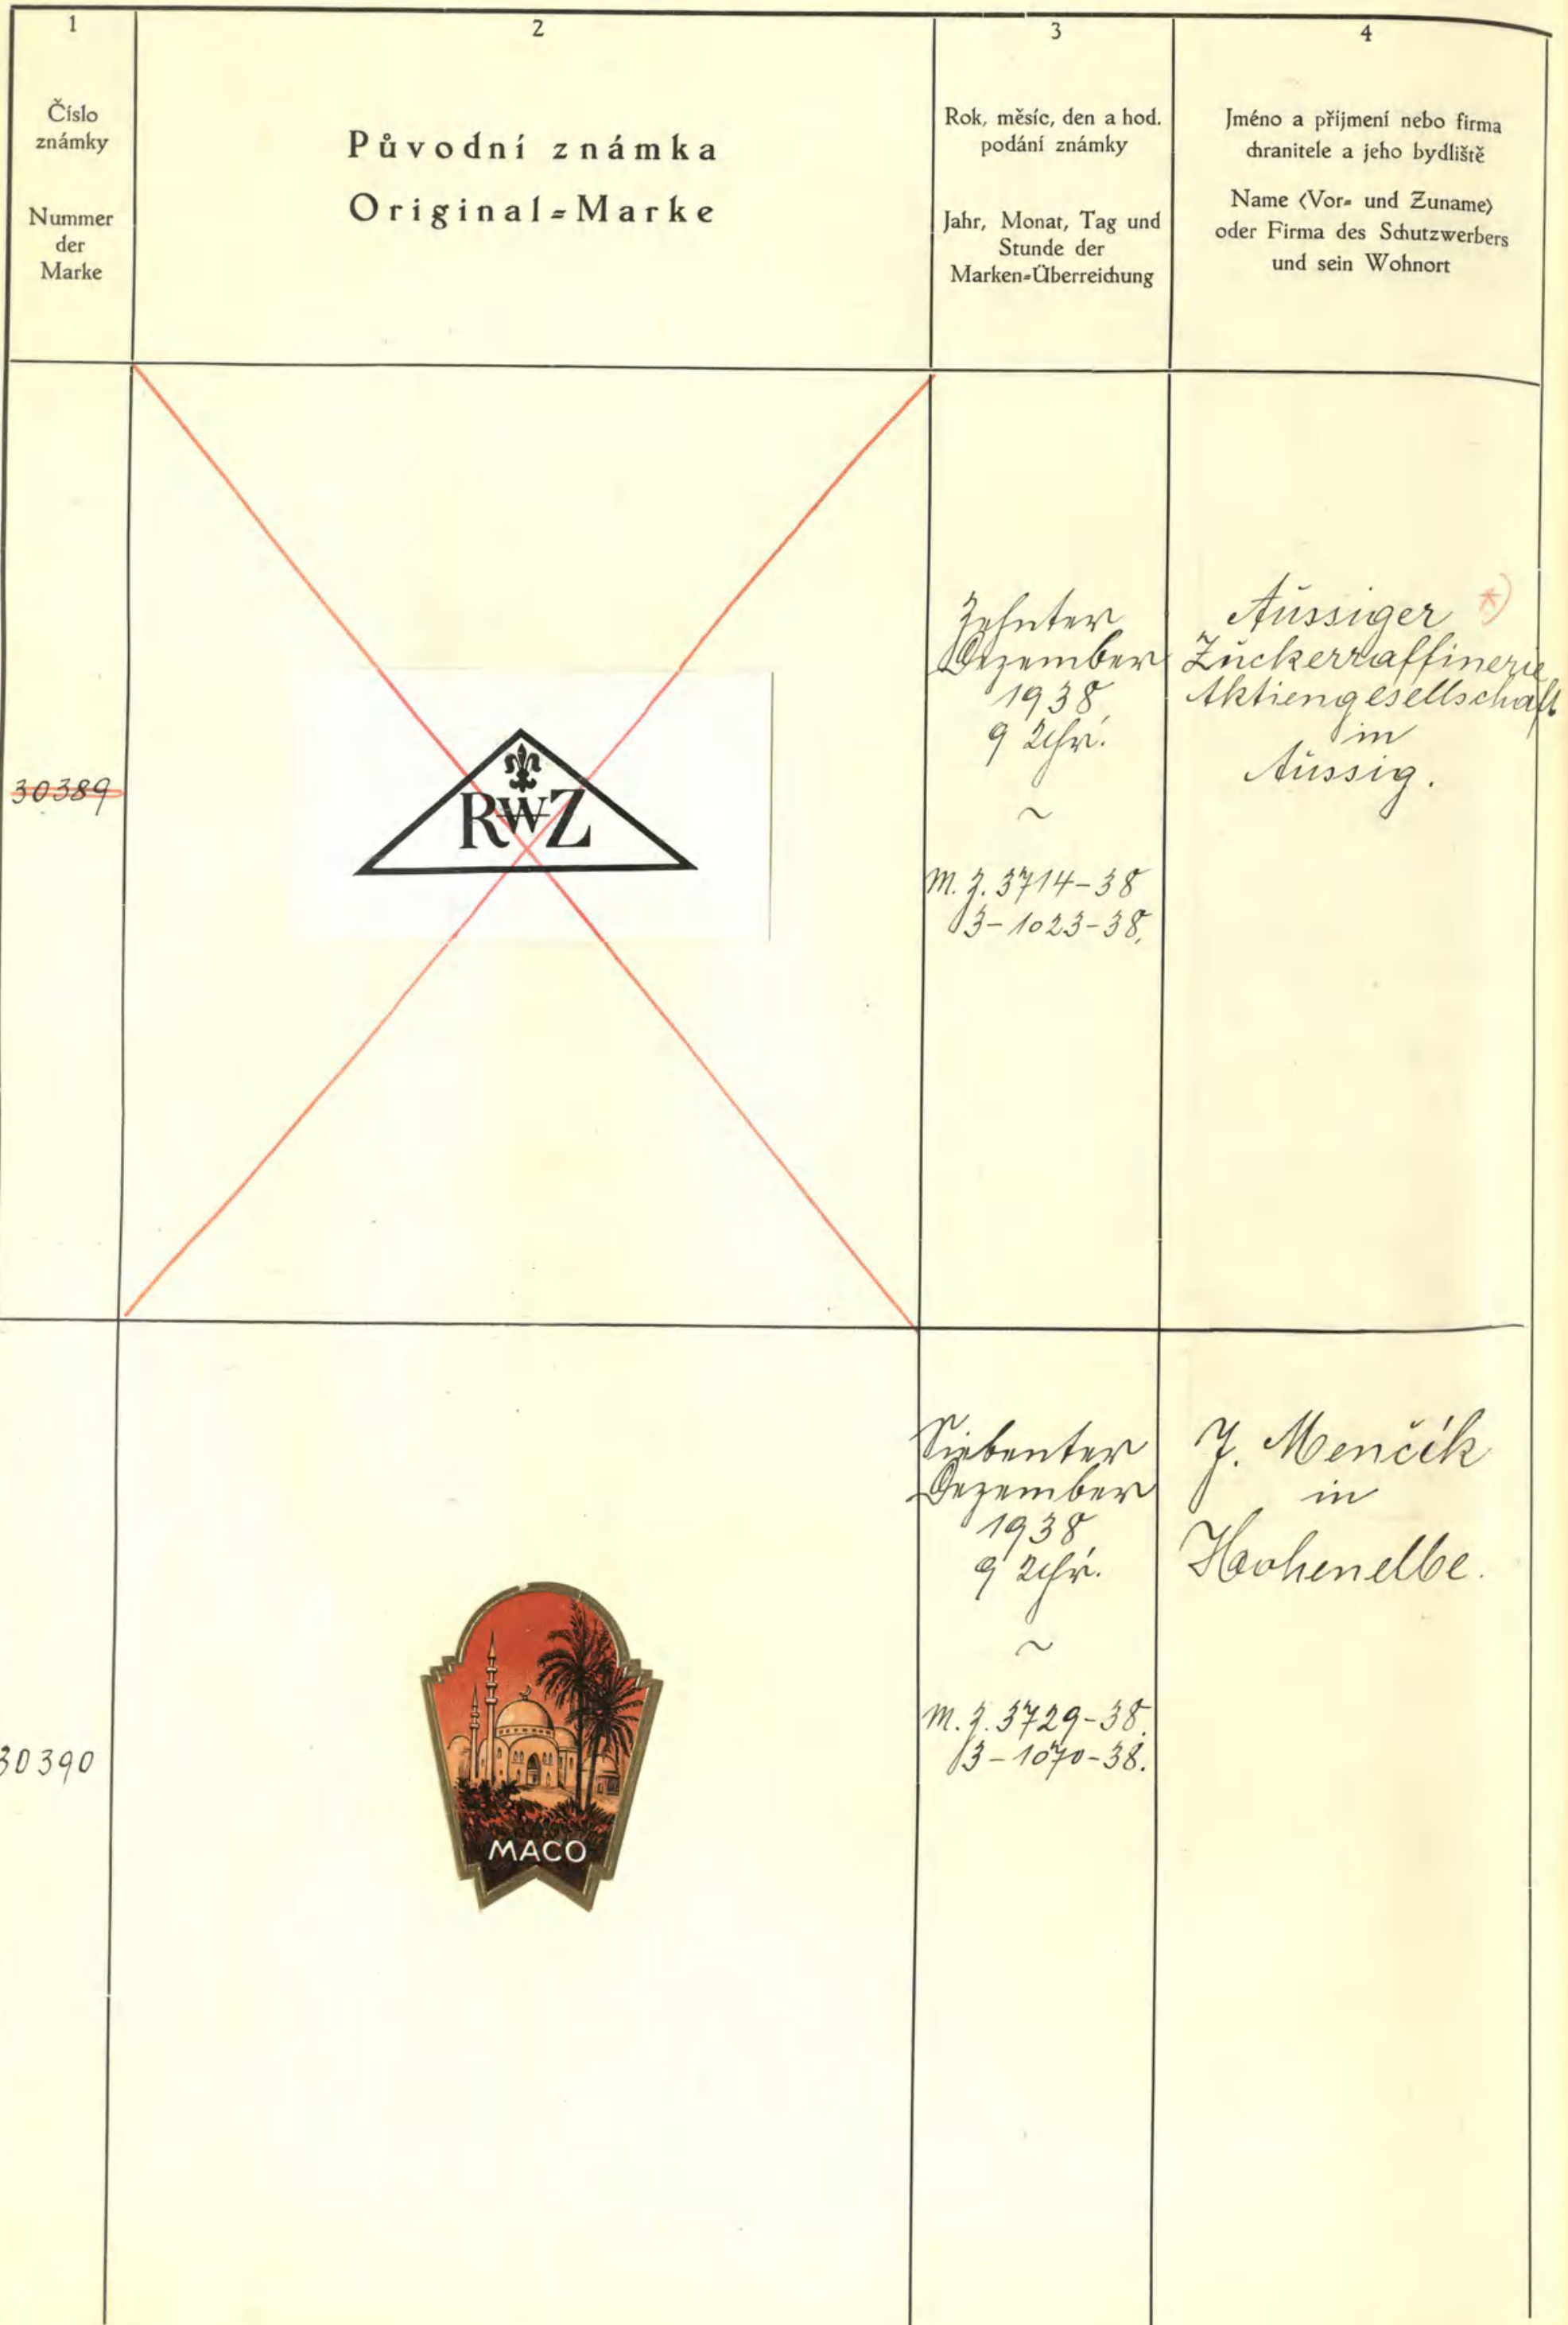 1
Číslo
známky
Nummer
der
Marke
2
Původní známka
Original=Marke
3
Rok, měsíc, den a hod.
podání známky
Jahr, Monat, Tag und
Stunde der
Marken=Überreichung
4
Jméno a přijmení nebo firma
chranitele a jeho bydliště
Name (Vor= und Zuname)
oder Firma des Schutzwerbers
und sein Wohnort
30389
RWZ
Zehnter
Dezember
1938
9 Uhr.
~
M. Z. 3714-38
B-1023-38.
Aussiger *)
Zuckerraffinerie
Aktiengesellschaft
in
Aussig.
30390
MACO
Siebenter
Dezember
1938
9 Uhr.
~
M. Z. 3729-38.
B-1070-38.
J. Menčík
in
Hohenelbe.